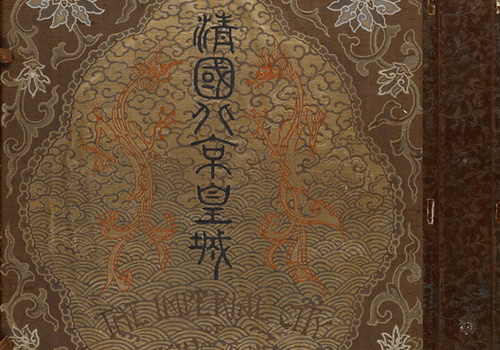 清國北京皇城
THE IMPERIAL CITY